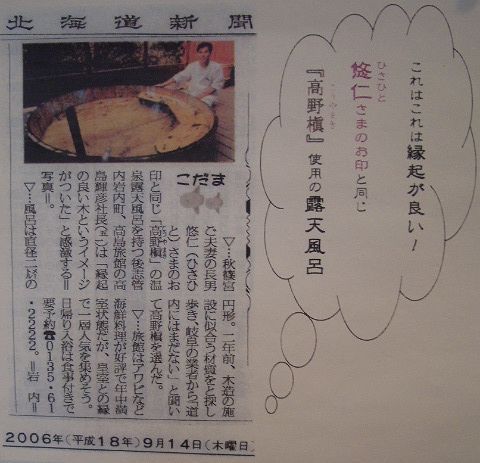 北海道新聞
こだま
▽…秋篠宮
ご夫妻の長男
悠仁（ひさひ
と）さまのお
印と同じ「高野槇」の温
泉露天風呂を持つ後志管
内岩内町、高島旅館の高
島輝彦社長は「縁起
の良い木というイメージ
がついた」と感激する＝
写真＝。
▽…風呂は直径二㍍の
円形。二年前、木造の施
設に似合う材質をと探し
歩き、岐阜の業者から「道
内にはまだない」と聞い
て高野槇を選んだ。
▽…旅館はアワビなど
海鮮料理が好評で年中満
室状態だが、皇室との縁
で一層人気を集めそう。
日帰り入浴は食事付きで
要予約☎0135・61
・2222。＝岩内＝
2006年（平成18年）9月14日（木曜日）
これはこれは縁起が良い！
ひさひと
悠仁さまのお印と同じ
こうやまき
『高野槇』使用の露天風呂